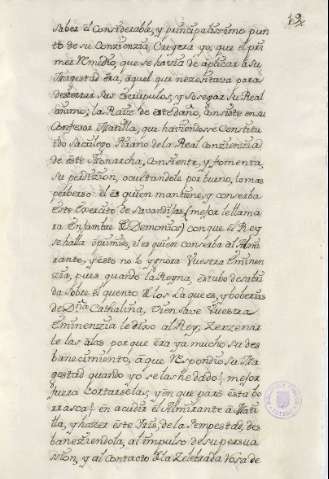 saber el Considerable, y principalissimo pun
to de su Conzienzia, Creyera yo, que el pri
mer Remedio, que se havia de aplicar a su
Magestad era, aquel que nezesitava para
desterrar sus escrupulos, y sosegar su Real
animo; la Raiz de este daño, consiste en su
Confesor Matilla, que haviendose Constitui
do Sacrilego tirano de la Real Conzienzia
de este Monarcha, Consiente, y fomenta,
su perdizion, ocultandole por bueno, lo mas
perberso: el es quien mantiene, y conserba
este Exercito de Savandijas (mejor le llama
ra Enjambre de Demonios) con que el Rey
se halla oprimido, el es quien conserba al Almi
rante, y esto no lo ygnora Vuestra Eminen
zia, pues quando la Reyna, estubo desabri
da sobre el quento de los Laques, y boberias
de Dña Cathalina, bien save Vuestra
Eminenzia le dixo al Rey, Zerzenar
le las alas por que era ya mucho su des
banezimiento, a que Respondio su Ma
gestad quando yo se las he dado; mejor
fuera Cortarselas, y en que paró esta bo
rrasca; en acudir el Almirante a Mati
lla, y hazer este Iris, de la tempestad des
baneziendola, al impulso de su persua
sion, y al contacto de la Zelebrada Joya de